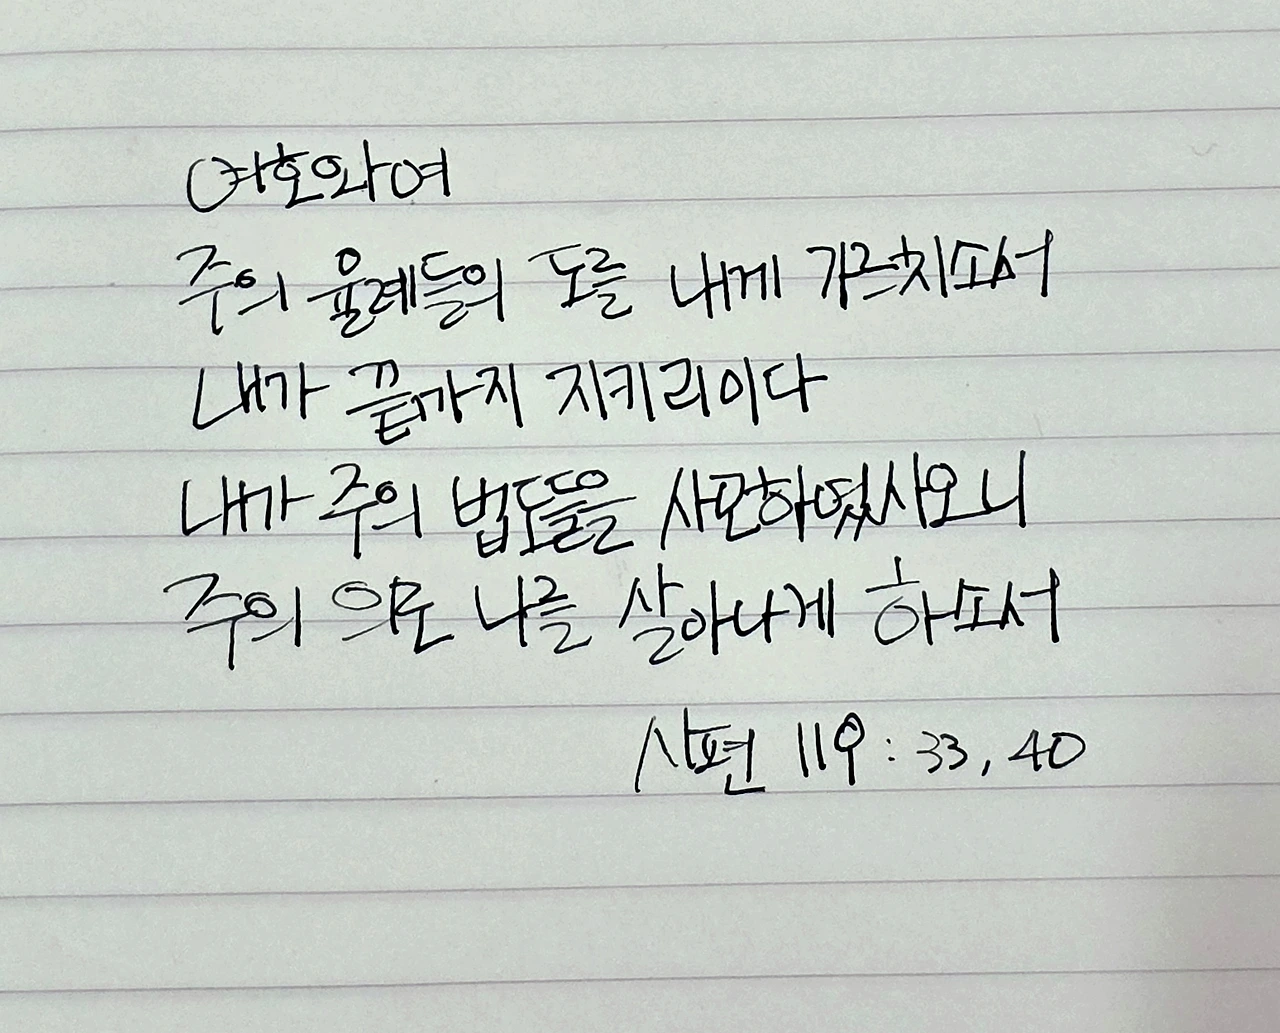 여호와여
주의 율례들의 도를 내게 가르치소서
내가 끝까지 지키리이다
내가 주의 법도들을 사모하였사오니
주의 의로 나를 살아나게 하소서
시편 119:33, 40